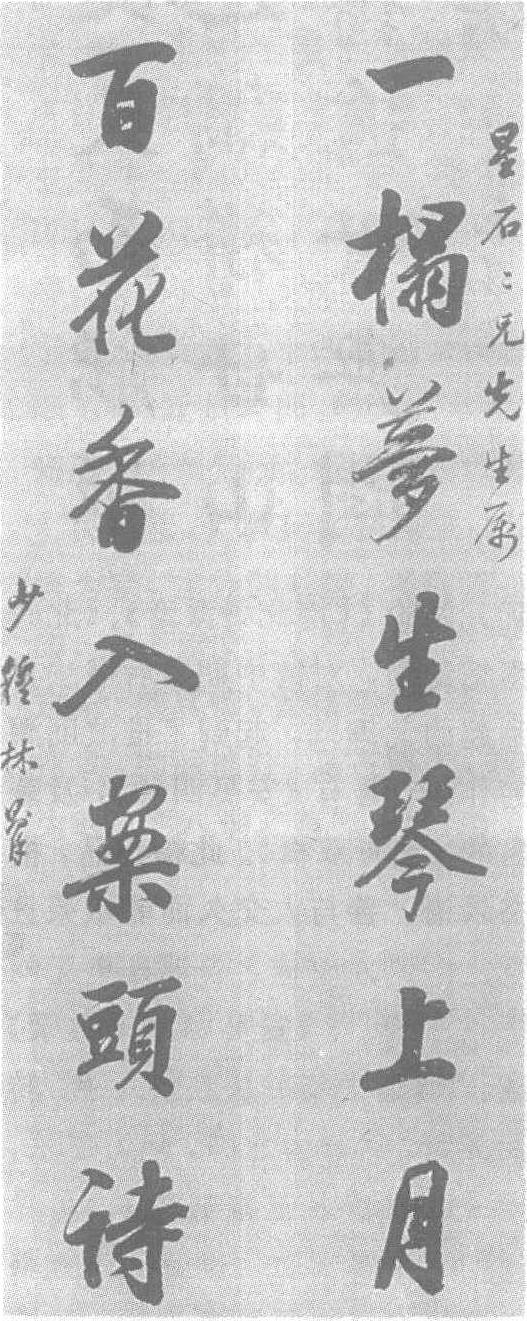 星石二兄先生屬
一榻夢生琴上月
百花香入案頭詩
少穆林